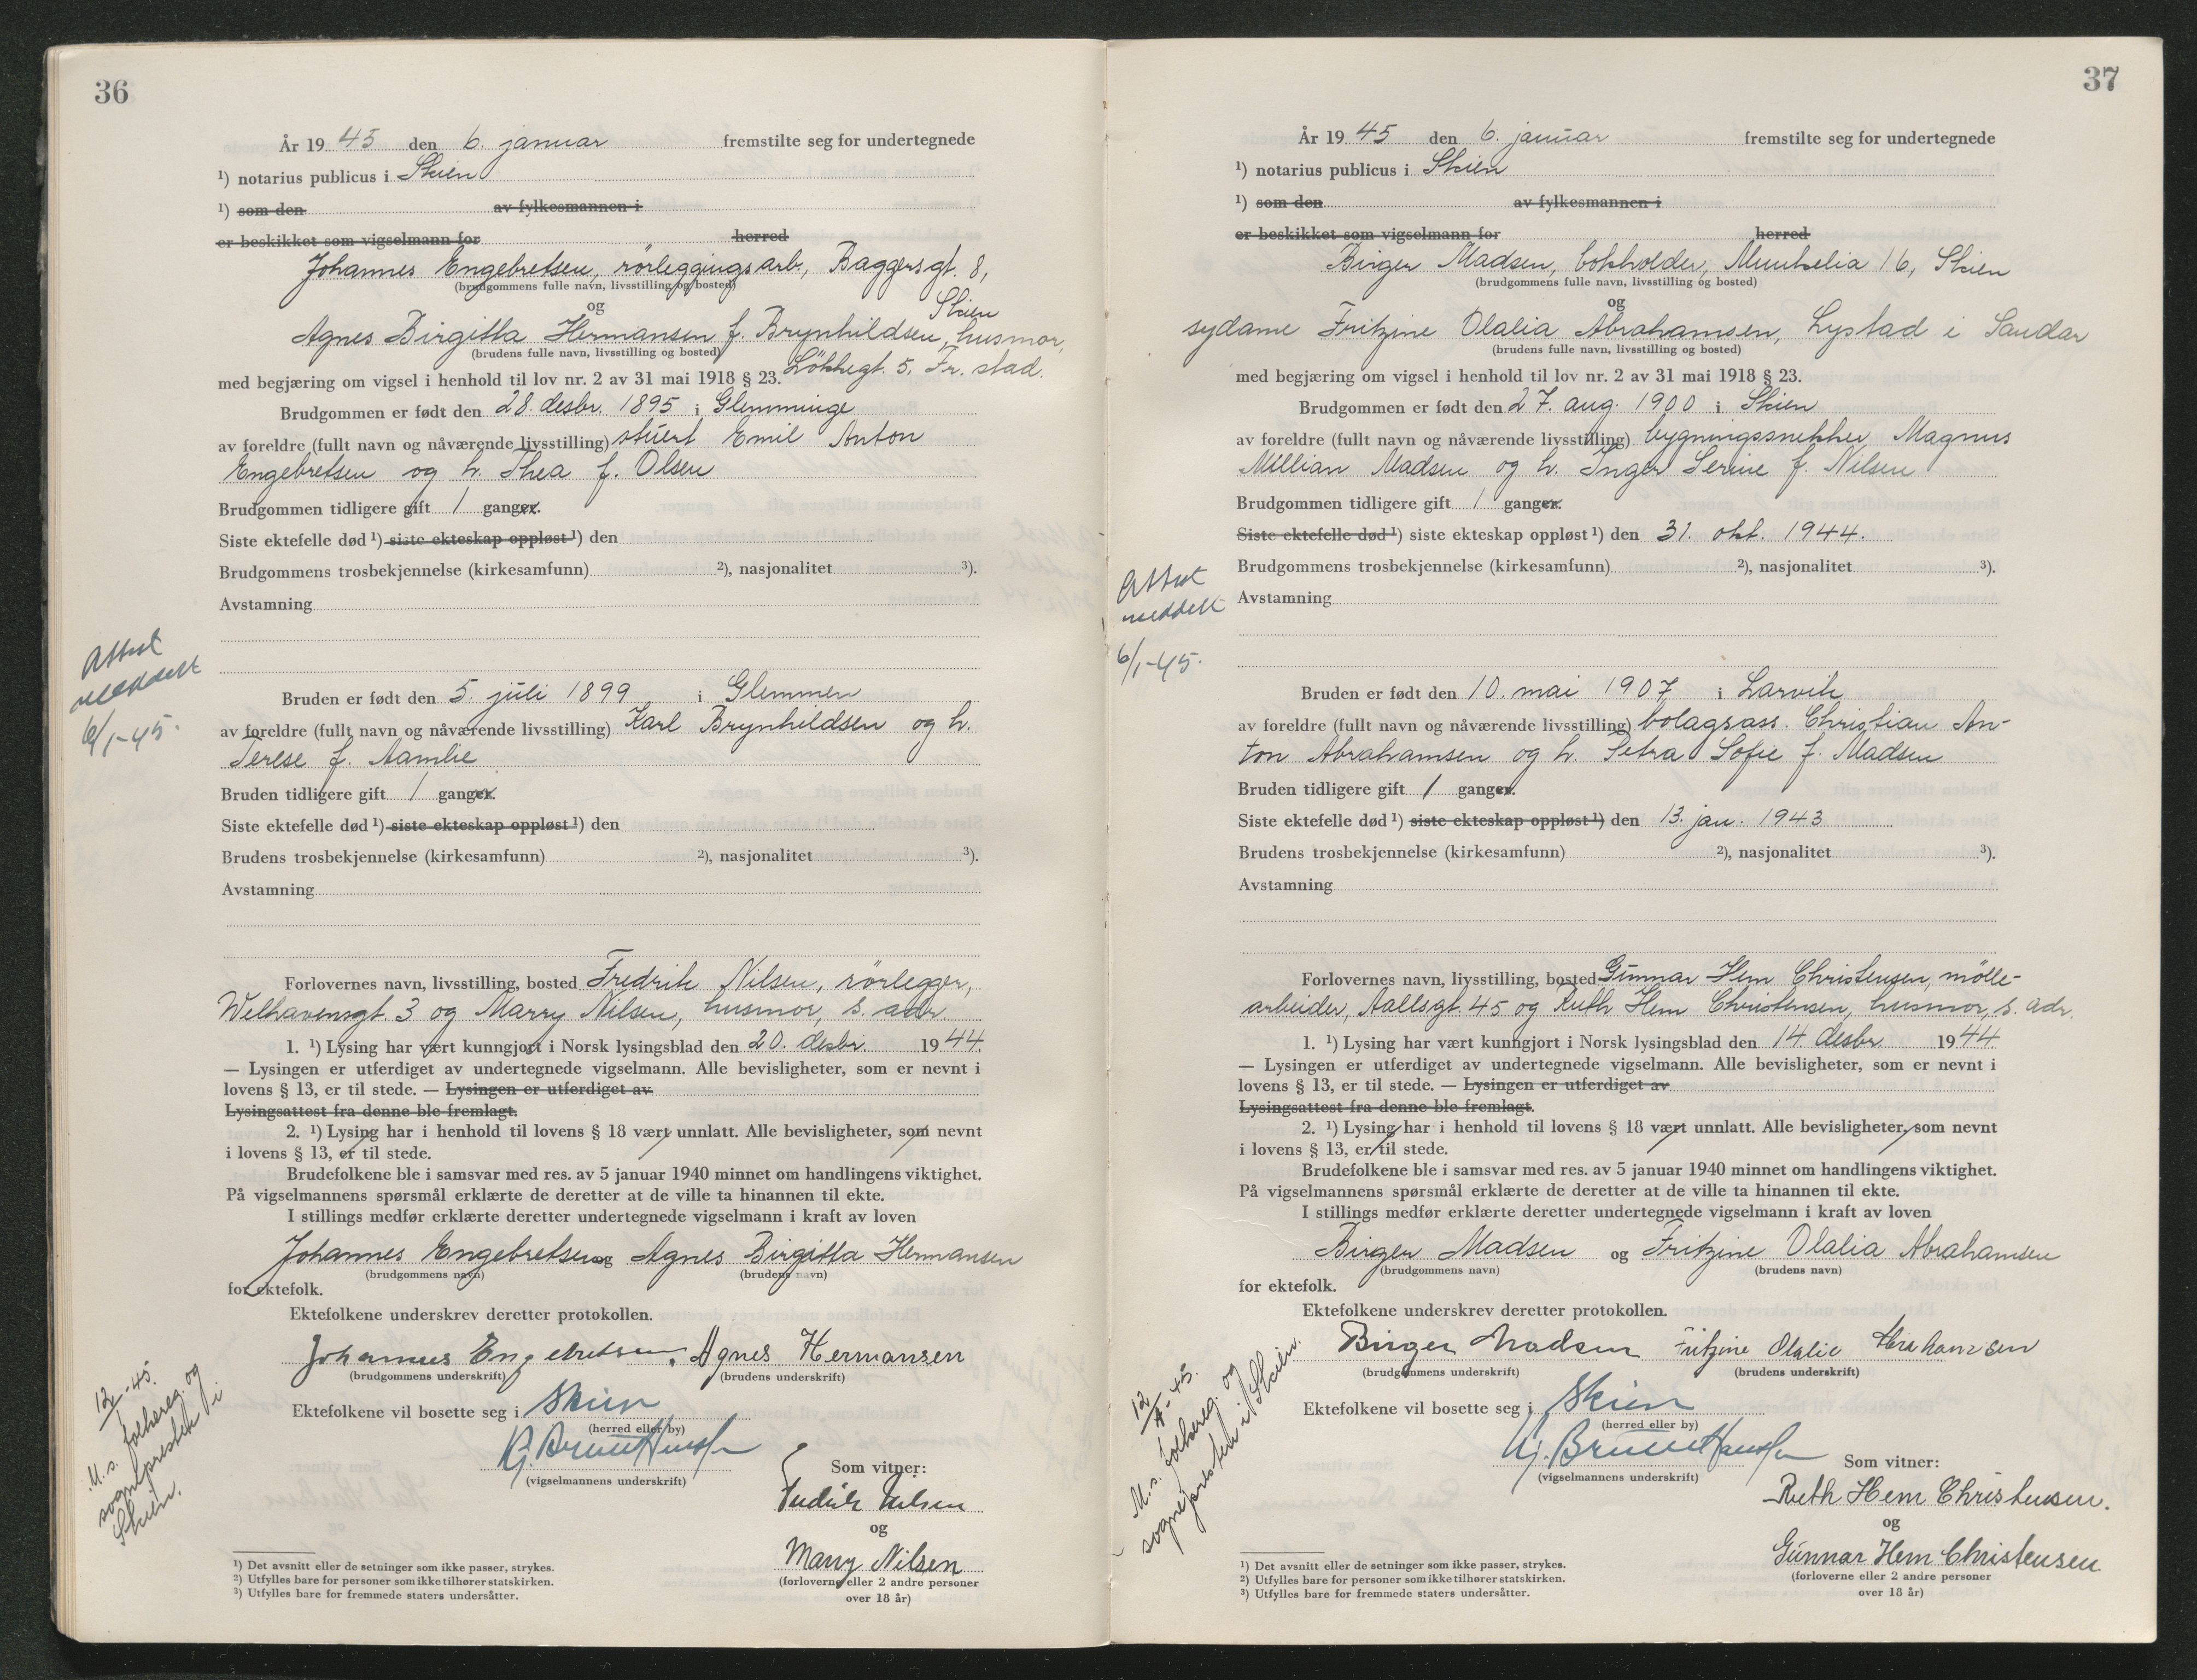 36
År 19 45 den 6. januar fremstilte seg for undertegnede
¹) notarius publicus i Skien
¹) som den av fylkesmannen i
er beskikket som vigselmann for herred
Johannes Engebretsen, rörleggingsarb, Baggersgt. 8,
(brudgommens fulle navn, livsstilling og bosted)
Skien
og
Agnes Birgitta Hermansen f. Brynhildsen, husmor,
(brudens fulle navn, livsstilling og bosted)
med begjæring om vigsel i henhold til lov nr. 2 av 31 mai 1918 § 23. Lökkegt. 5, Fr. stad.
Brudgommen er født den 28. desbr. 1895 i Glemminge
av foreldre (fullt navn og nåværende livsstilling) stuert Emil Anton
Engebretsen og h. Thea f. Olsen
Brudgommen tidligere gift 1 ganger.
Siste ektefelle død ¹) siste ekteskap oppløst ¹) den
Brudgommens trosbekjennelse (kirkesamfunn) ²), nasjonalitet ³).
Avstamning
Attest
meddelt
6/1-45.
Bruden er født den 5. juli 1899 i Glemmen
av foreldre (fullt navn og nåværende livsstilling) Karl Brynhildsen og h.
Terese f. Aamlie
Bruden tidligere gift 1 ganger.
Siste ektefelle død ¹) siste ekteskap oppløst ¹) den
Brudens trosbekjennelse (kirkesamfunn) ²), nasjonalitet ³).
Avstamning
Forlovernes navn, livsstilling, bosted Fredrik Nilsen, rörlegger,
Welhavensgt. 3 og Marry Nilsen, husmor, s. adr.
1. ¹) Lysing har vært kunngjort i Norsk lysingsblad den 20. desbr. 1944.
— Lysingen er utferdiget av undertegnede vigselmann. Alle bevisligheter, som er nevnt i
lovens § 13, er til stede. — Lysingen er utferdiget av
Lysingsattest fra denne ble fremlagt.
2. ¹) Lysing har i henhold til lovens § 18 vært unnlatt. Alle bevisligheter, som nevnt
i lovens § 13, er til stede.
Brudefolkene ble i samsvar med res. av 5 januar 1940 minnet om handlingens viktighet.
På vigselmannens spørsmål erklærte de deretter at de ville ta hinannen til ekte.
I stillings medfør erklærte deretter undertegnede vigselmann i kraft av loven
Johannes Engebretsen og Agnes Birgitta Hermansen
(brudgommens navn) (brudens navn)
for ektefolk.
Ektefolkene underskrev deretter protokollen.
Johannes Engebretsen. Agnes Hermansen
(brudgommens underskrift) (brudens underskrift)
Ektefolkene vil bosette seg i Skien
(herred eller by)
Kj. Bruun Hansen
(vigselmannens underskrift)
Som vitner:
Fredrik Nilsen
og
Marry Nilsen
(forloverne eller 2 andre personer
over 18 år)
12/1-45.
M. s. folkereg. og
sognepresten i
Skien.
¹) Det avsnitt eller de setninger som ikke passer, strykes.
²) Utfylles bare for personer som ikke tilhører statskirken.
³) Utfylles bare for fremmede staters undersåtter.
37
År 19 45 den 6. januar fremstilte seg for undertegnede
¹) notarius publicus i Skien
¹) som den av fylkesmannen i
er beskikket som vigselmann for herred
Birger Madsen, bokholder, Munkelia 16, Skien
(brudgommens fulle navn, livsstilling og bosted)
og
sydame Fritzine Olalia Abrahamsen, Lystad i Sandar
(brudens fulle navn, livsstilling og bosted)
med begjæring om vigsel i henhold til lov nr. 2 av 31 mai 1918 § 23.
Brudgommen er født den 27. aug. 1900 i Skien
av foreldre (fullt navn og nåværende livsstilling) bygningssnekker Magnus
Millian Madsen og h. Inger Serine f. Nilsen
Brudgommen tidligere gift 1 ganger.
Siste ektefelle død ¹) siste ekteskap oppløst ¹) den 31. okt. 1944.
Brudgommens trosbekjennelse (kirkesamfunn) ²), nasjonalitet ³).
Avstamning
Attest
meddelt
6/1-45.
Bruden er født den 10. mai 1907 i Larvik
av foreldre (fullt navn og nåværende livsstilling) bolagsass. Christian An-
ton Abrahamsen og h. Petra Sofie f. Madsen
Bruden tidligere gift 1 ganger.
Siste ektefelle død ¹) siste ekteskap oppløst ¹) den 13. jan. 1943
Brudens trosbekjennelse (kirkesamfunn) ²), nasjonalitet ³).
Avstamning
Forlovernes navn, livsstilling, bosted Gunnar Hem Christensen, mölle-
arbeider, Aallsgt. 45 og Ruth Hem Christensen, husmor, s. adr.
1. ¹) Lysing har vært kunngjort i Norsk lysingsblad den 14 desbr. 1944
— Lysingen er utferdiget av undertegnede vigselmann. Alle bevisligheter, som er nevnt i
lovens § 13, er til stede. — Lysingen er utferdiget av
Lysingsattest fra denne ble fremlagt.
2. ¹) Lysing har i henhold til lovens § 18 vært unnlatt. Alle bevisligheter, som nevnt
i lovens § 13, er til stede.
Brudefolkene ble i samsvar med res. av 5 januar 1940 minnet om handlingens viktighet.
På vigselmannens spørsmål erklærte de deretter at de ville ta hinannen til ekte.
I stillings medfør erklærte deretter undertegnede vigselmann i kraft av loven
Birger Madsen og Fritzine Olalia Abrahamsen
(brudgommens navn) (brudens navn)
for ektefolk.
Ektefolkene underskrev deretter protokollen.
Birger Madsen Fritzine Olalie Abrahamsen
(brudgommens underskrift) (brudens underskrift)
Ektefolkene vil bosette seg i Skien
(herred eller by)
Kj. Bruun Hansen
(vigselmannens underskrift)
Som vitner:
Ruth Hem Christensen.
og
Gunnar Hem Christensen
(forloverne eller 2 andre personer
over 18 år)
12/1-45.
M. s. folkereg. og
sognepresten i Skien.
¹) Det avsnitt eller de setninger som ikke passer, strykes.
²) Utfylles bare for personer som ikke tilhører statskirken.
³) Utfylles bare for fremmede staters undersåtter.